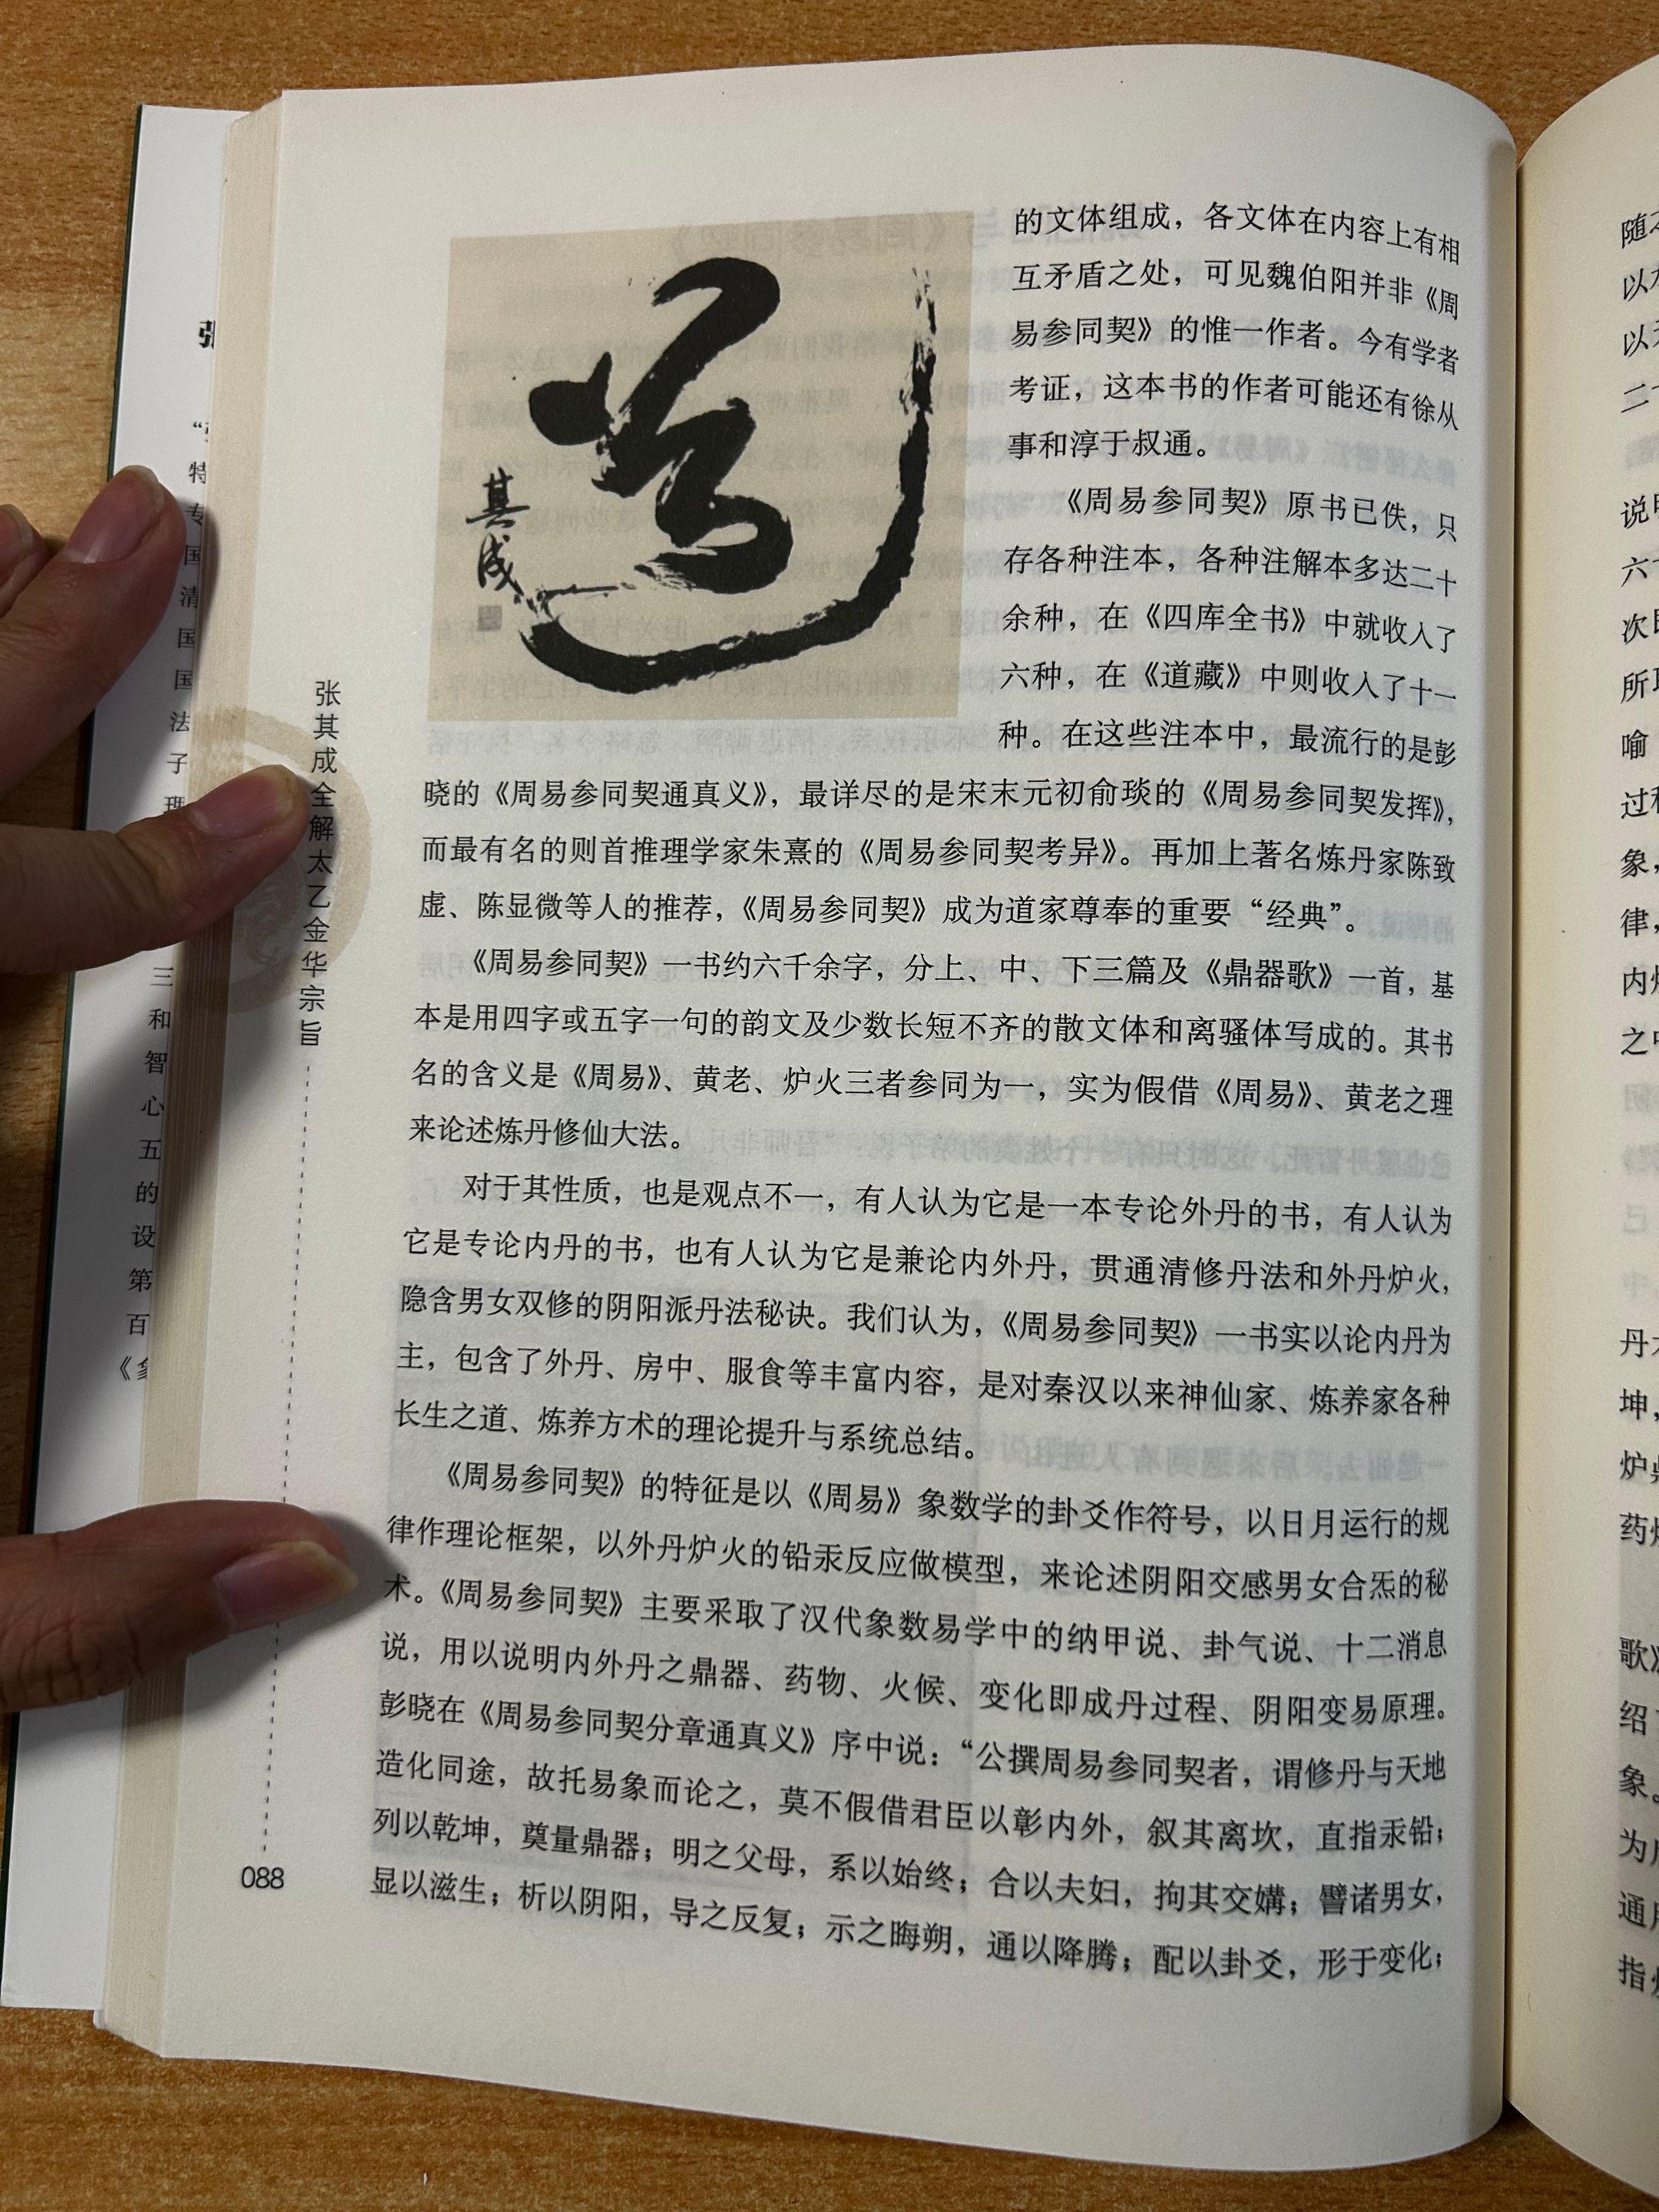 的文体组成，各文体在内容上有相
互矛盾之处，可见魏伯阳并非《周
易参同契》的惟一作者。今有学者
考证，这本书的作者可能还有徐从
事和淳于叔通。
《周易参同契》原书已佚，只
存各种注本，各种注解本多达二十
余种，在《四库全书》中就收入了
六种，在《道藏》中则收入了十一
种。在这些注本中，最流行的是彭
晓的《周易参同契通真义》，最详尽的是宋末元初俞琰的《周易参同契发挥》，
而最有名的则首推理学家朱熹的《周易参同契考异》。再加上著名炼丹家陈致
虚、陈显微等人的推荐，《周易参同契》成为道家尊奉的重要“经典”。
《周易参同契》一书约六千余字，分上、中、下三篇及《鼎器歌》一首，基
本是用四字或五字一句的韵文及少数长短不齐的散文体和离骚体写成的。其书
名的含义是《周易》、黄老、炉火三者参同为一，实为假借《周易》、黄老之理
来论述炼丹修仙大法。
对于其性质，也是观点不一，有人认为它是一本专论外丹的书，有人认为
它是专论内丹的书，也有人认为它是兼论内外丹，贯通清修丹法和外丹炉火，
隐含男女双修的阴阳派丹法秘诀。我们认为，《周易参同契》一书实以论内丹为
主，包含了外丹、房中、服食等丰富内容，是对秦汉以来神仙家、炼养家各种
长生之道、炼养方术的理论提升与系统总结。
《周易参同契》的特征是以《周易》象数学的卦爻作符号，以日月运行的规
律作理论框架，以外丹炉火的铅汞反应做模型，来论述阴阳交感男女合炁的秘
术。《周易参同契》主要采取了汉代象数易学中的纳甲说、卦气说、十二消息
说，用以说明内外丹之鼎器、药物、火候、变化即成丹过程、阴阳变易原理。
彭晓在《周易参同契分章通真义》序中说：“公撰周易参同契者，谓修丹与天地
造化同途，故托易象而论之，莫不假借君臣以彰内外，叙其离坎，直指汞铅；
列以乾坤，奠量鼎器；明之父母，系以始终；合以夫妇，拘其交媾；譬诸男女，
显以滋生；析以阴阳，导之反复；示之晦朔，通以降腾；配以卦爻，形于变化；
道
其成
张其成全解太乙金华宗旨
088
特
专
国
清
国
国
法
子
三
和
智
心
五
的
设
第
百
随
以
以
二
说
六
次
所
喻
过
象，
律，
内
之
丹
坤，
炉
药
歌》
绍
象。
为
通
指